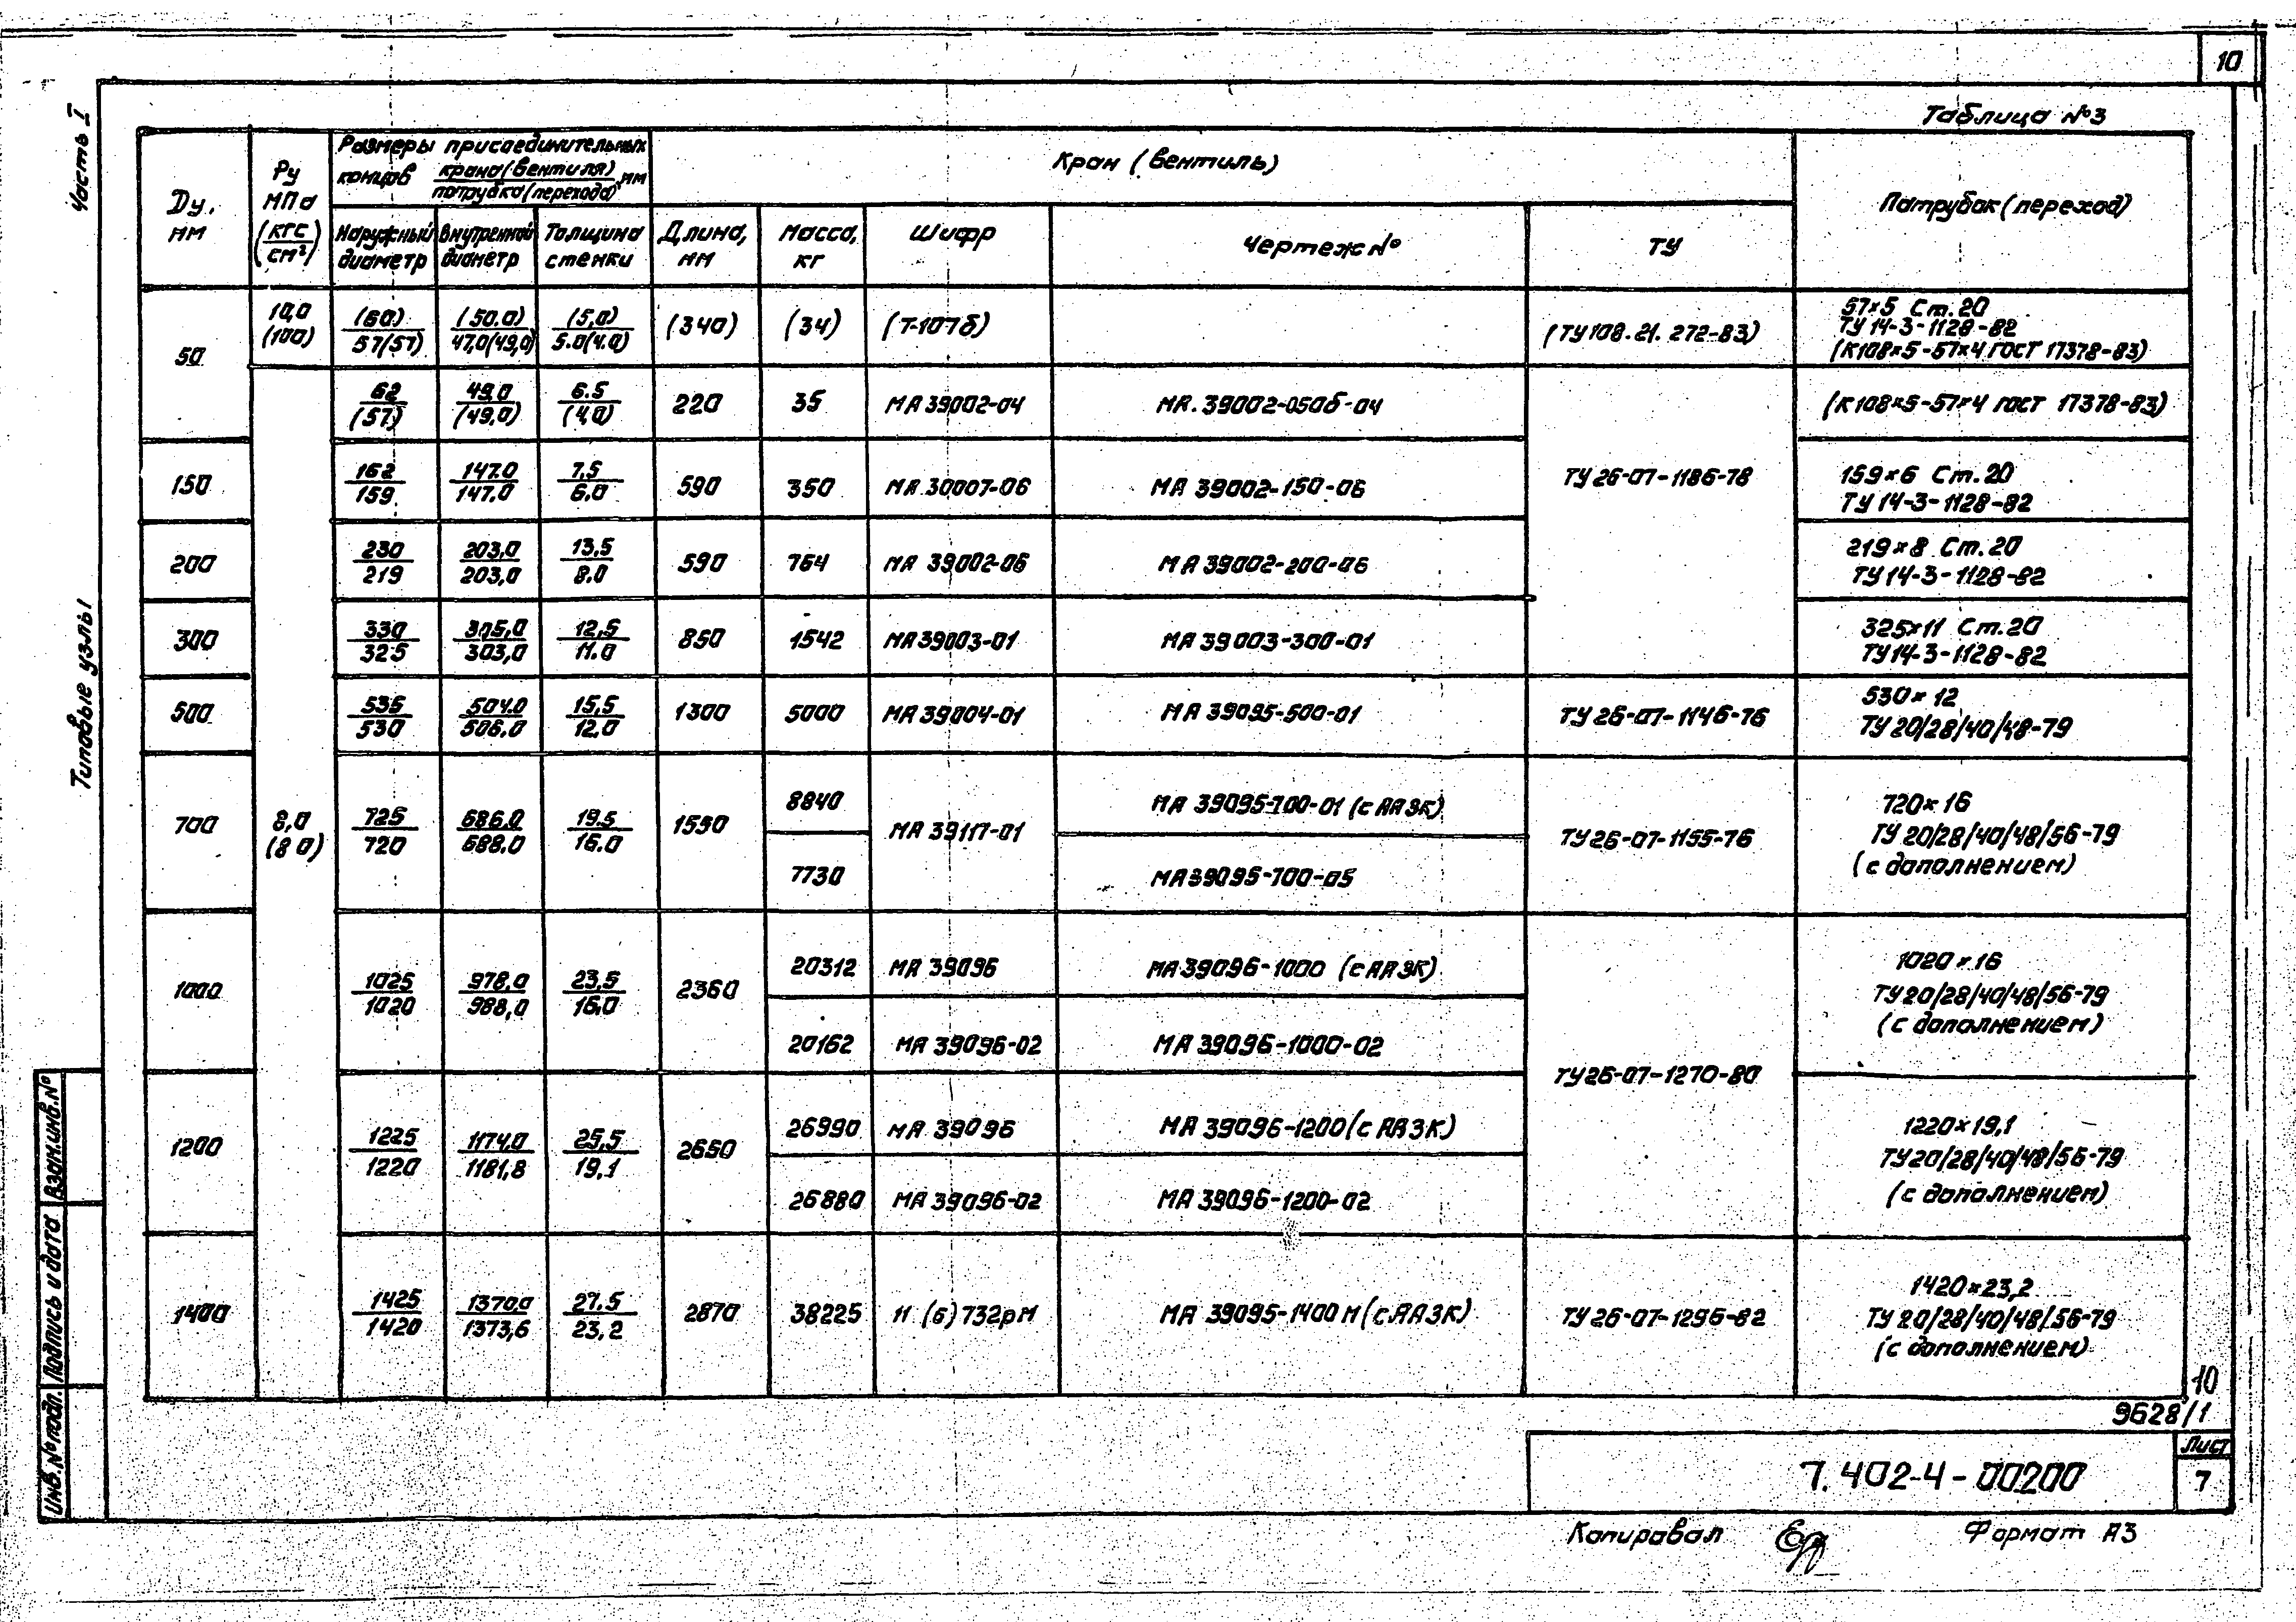 10
Часть I
Типовые узлы
Таблица №3
Ду, мм
Ру МПа (кгс/см²)
Размеры присоединительных концов крана (вентиля)/патрубка (перехода), мм
Наружный диаметр
Внутренний диаметр
Толщина стенки
Кран (вентиль)
Длина, мм
Масса, кг
Шифр
Чертеж №
ТУ
Патрубок (переход)
50
10,0 (100)
(60)/57(57)
(50.0)/47,0(49,0)
(5,0)/5.0(4.0)
(340)
(34)
(Т-107б)
(ТУ108.21.272-83)
57×5 Ст.20
ТУ 14-3-1128-82
(К108×5-57×4 ГОСТ 17378-83)
62/(57)
49.0/(49.0)
6.5/(4,0)
220
35
МА 39002-04
МА.39002-050б-04
ТУ 26-07-1186-78
(К108×5-57×4 ГОСТ 17378-83)
150
162/159
147.0/147.0
7,5/6,0
590
350
МА 30007-06
МА 39002-150-06
159×6 Ст.20
ТУ 14-3-1128-82
200
230/219
203,0/203,0
13,5/8.0
590
764
МА 39002-06
МА 39002-200-06
219×8 Ст.20
ТУ 14-3-1128-82
300
330/325
305,0/303,0
12,5/11.0
850
1542
МА 39003-01
МА 39003-300-01
325×11 Ст.20
ТУ 14-3-1128-82
500
536/530
504.0/506.0
15,5/12,0
1300
5000
МА 39004-01
МА 39095-500-01
ТУ 26-07-1146-76
530×12
ТУ 20/28/40/48-79
700
8,0 (80)
725/720
686.0/688.0
19.5/16.0
1550
8840
МА 39117-01
МА 39095-700-01 (с ААЗК)
7730
МА 39095-700-05
ТУ 26-07-1155-76
720×16
ТУ 20/28/40/48/56-79
(с дополнением)
1000
1025/1020
978,0/988,0
23,5/16,0
2360
20312
МА 39096
МА 39096-1000 (с ААЗК)
20162
МА 39096-02
МА 39096-1000-02
ТУ 26-07-1270-80
1020×16
ТУ 20/28/40/48/56-79
(с дополнением)
1200
1225/1220
1174,0/1181,8
25,5/19.1
2650
26990
МА 39096
МА 39096-1200 (с ААЗК)
26880
МА 39096-02
МА 39096-1200-02
1220×19,1
ТУ 20/28/40/48/56-79
(с дополнением)
1400
1425/1420
1370,0/1373,6
27.5/23,2
2870
38225
11 (б) 732рМ
МА 39095-1400 М (с ААЗК)
ТУ 26-07-1296-82
1420×23,2
ТУ 20/28/40/48/56-79
(с дополнением)
10
9628/1
7.402-4-00200
Лист
7
Копировал
Формат А3
Взам.инв.№
Подпись и дата
Инв.№ подл.